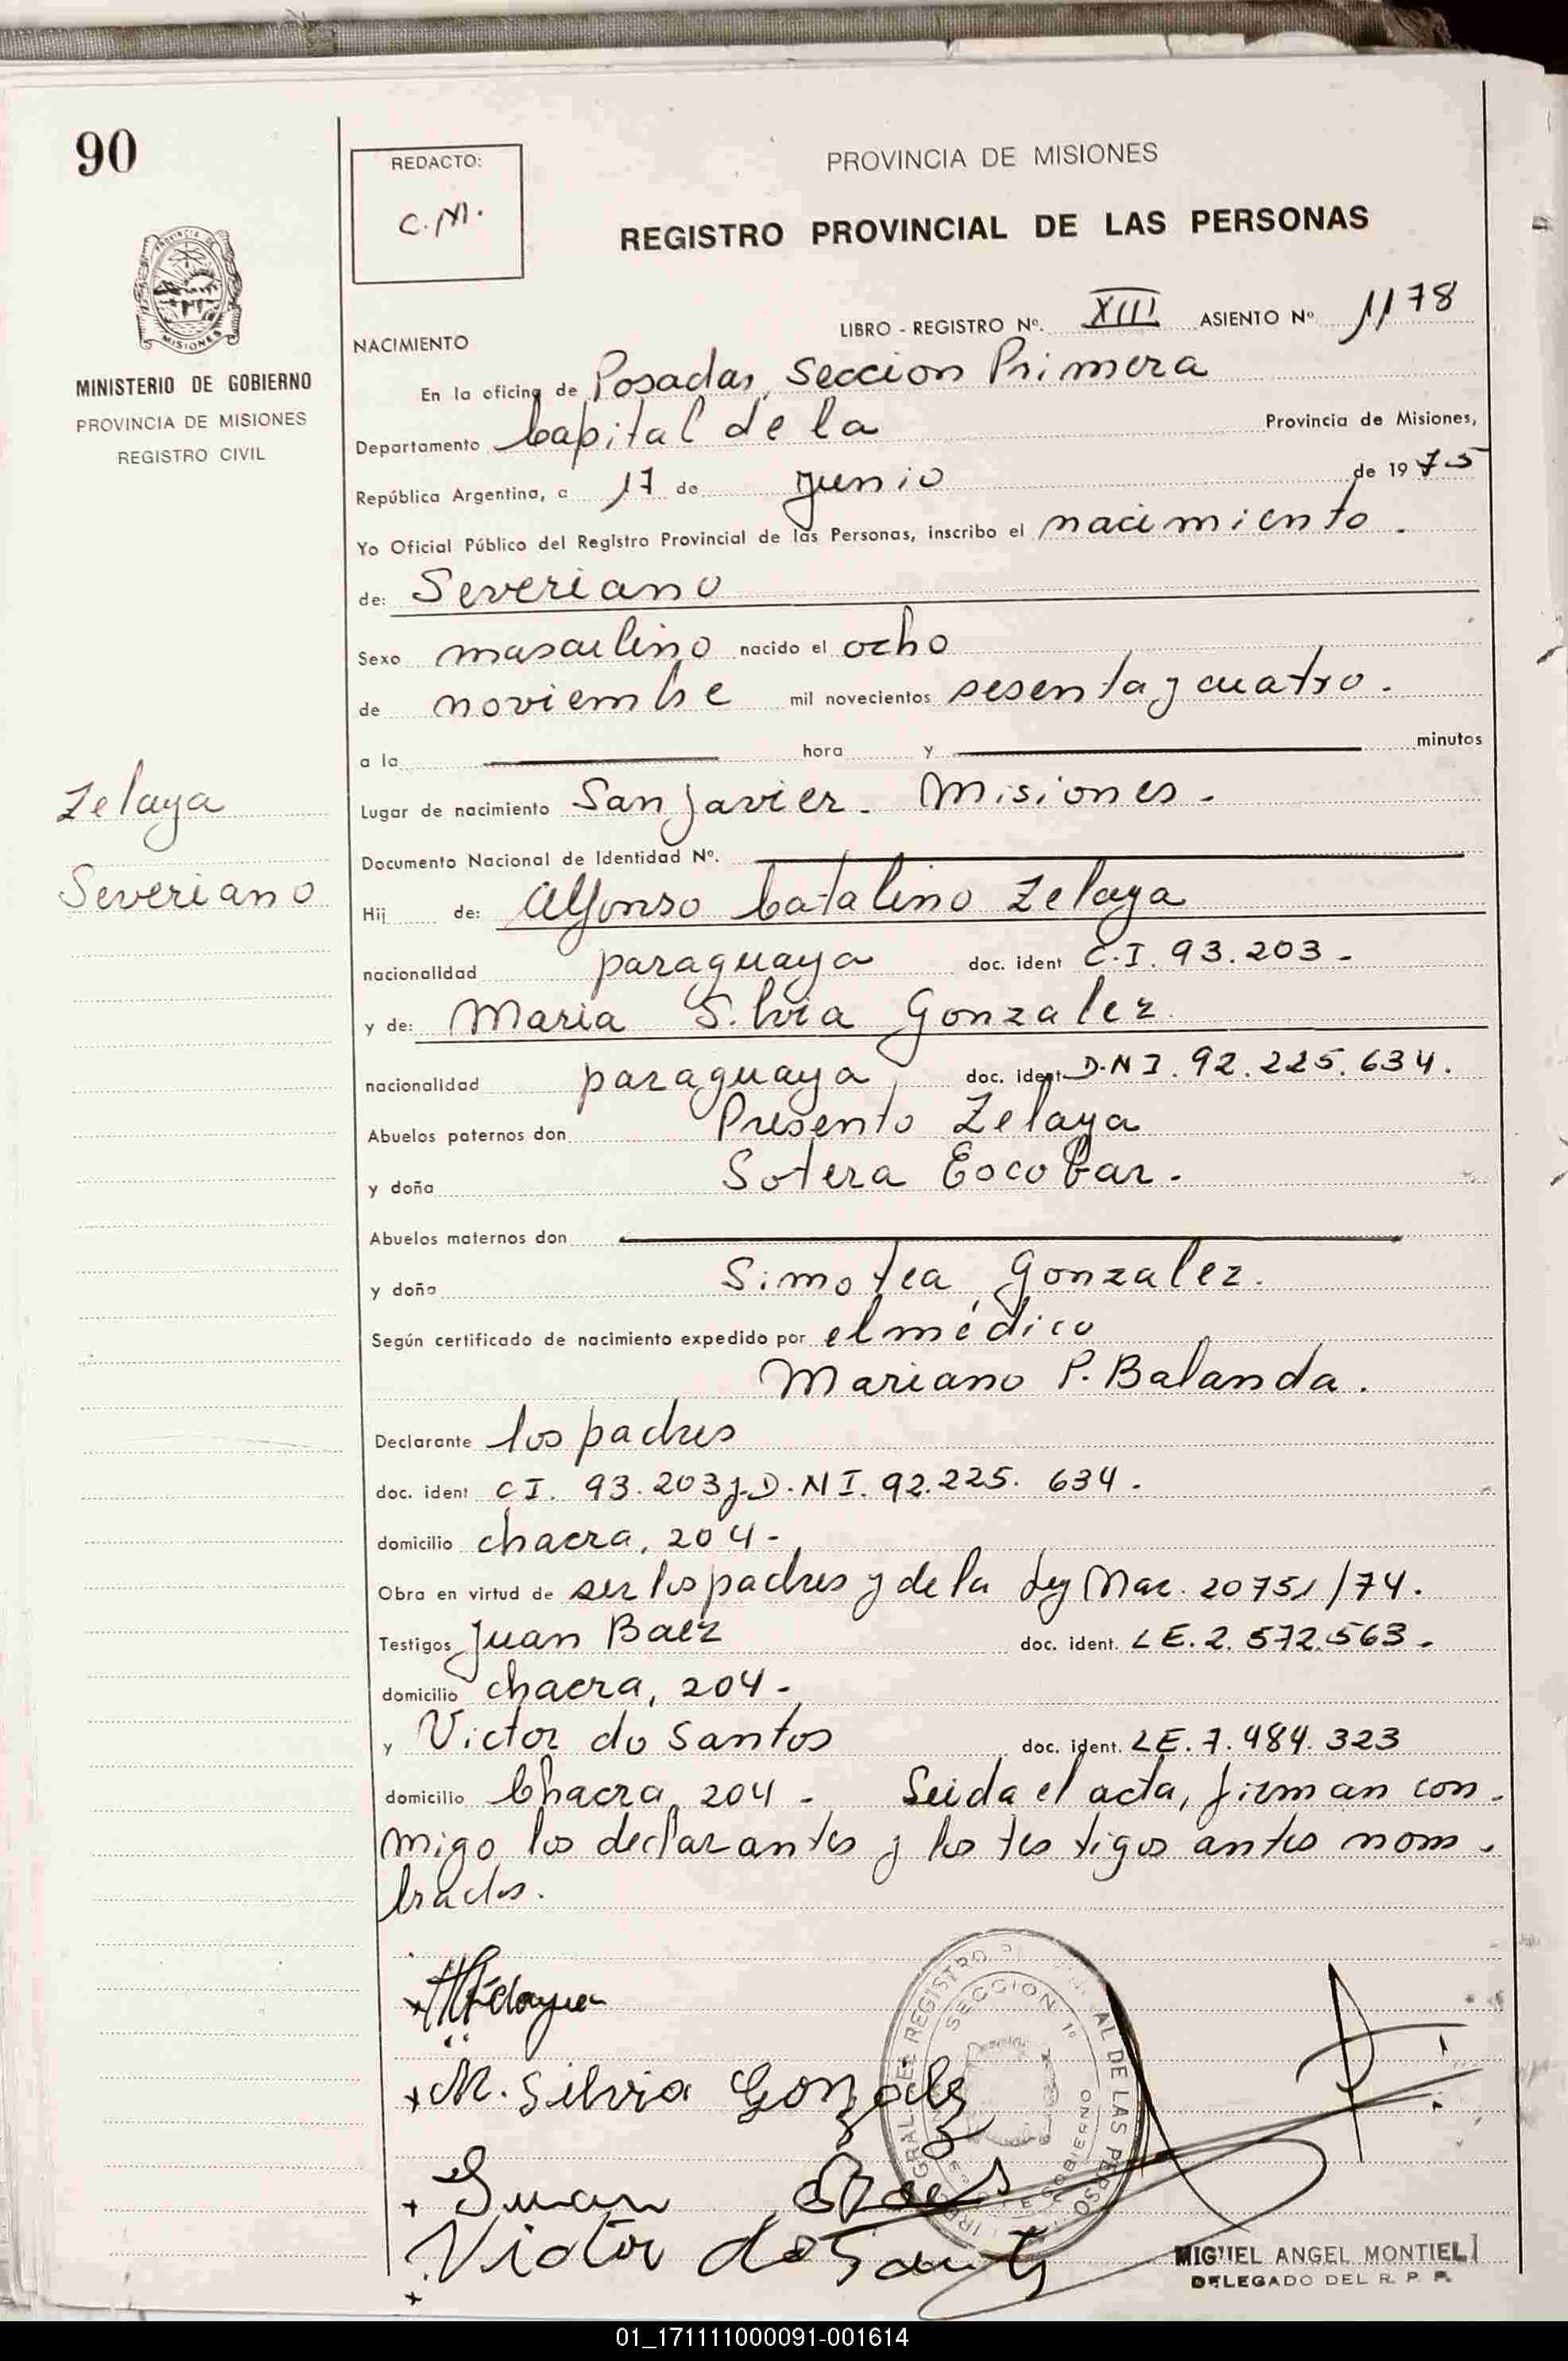 90
REDACTO:
C.M.
PROVINCIA DE MISIONES
REGISTRO PROVINCIAL DE LAS PERSONAS
PROVINCIA DE
MISIONES
MINISTERIO DE GOBIERNO
PROVINCIA DE MISIONES
REGISTRO CIVIL
LIBRO - REGISTRO Nº. XIII ASIENTO Nº 1178
NACIMIENTO
En la oficina de Posadas, Seccion Primera
Departamento Capital de la Provincia de Misiones,
República Argentina, a 17 de Junio de 1975
Yo Oficial Público del Registro Provincial de las Personas, inscribo el nacimiento.
de: Severiano
Sexo masculino nacido el ocho
de noviembre mil novecientos sesenta y cuatro.
a la hora y minutos
Lugar de nacimiento San Javier. Misiones.
Documento Nacional de Identidad Nº.
Zelaya
Severiano
Hij de: Alfonso Catalino Zelaya
nacionalidad paraguaya doc. ident C.I. 93.203-
y de: Maria Silvia Gonzalez.
nacionalidad paraguaya, doc. ident D.N I. 92.225.634.
Abuelos paternos don Presento Zelaya
y doña Sotera Escobar.
Abuelos maternos don
y doña Simotea Gonzalez.
Según certificado de nacimiento expedido por el médico
Mariano P. Balanda.
Declarante los padres
doc. ident C I. 93.203 y D.N I. 92.225. 634.
domicilio chacra, 204-
Obra en virtud de ser los padres y de la Ley Nac. 20751/74.
Testigos Juan Baez doc. ident. L E. 2. 572.563-
domicilio chacra, 204-
y Victor do Santos doc. ident. L E. 7. 484. 323
domicilio Chacra, 204 - Leida el acta, firman con-
migo los declarantes y los testigos antes nom-
brados.
Zelaya
M. Silvia Gonzalez
Juan Baez
Victor do Santos
REGISTRO AL DE LAS PERSO
SECCION 1º
GOBIERNO
MIGUEL ANGEL MONTIEL
DELEGADO DEL R. P. P.
01_171111000091-001614